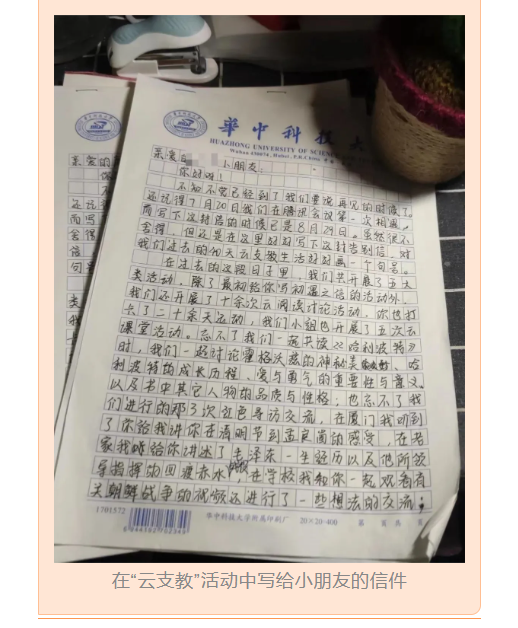 華中科技大
HUAZHONG UNIVERSITY OF SCIEN
亲爱的 小朋友:
你好呀!
不知不觉已经到了我们要说再见的时候了,
还记得7月20日我们在腾讯会议第一次相遇,
而写下这封信的时候已是8月29日。虽然很不
舍得,但还是在这里好好写下这封告别信,对
我们过去的40天云支教生活好好画一个句号。
在过去的这段日子里,我们共开展了五大
类活动,除了最初给你写初遇之信的活动外,
我们还开展了十余次云阅读讨论活动,你也打
卡了二十余天运动,我们小组也开展了五次云
课堂活动。忘不了我们一起共读《哈利波特》
时,我们一起讨论霍格沃兹的神秘美、哈
利波特的成长历程、爱与勇气的重要性与意义
以及书中其它人物的品质与性格;也忘不了我
们进行的那3次红色寻访交流,在厦门我听到
了你给我讲你在清明节到孟良崮的感受,在老
家我给你讲述了毛泽东一生经历以及他所领
导指挥的四渡赤水,在学校我和你一起观看有
关朝鲜战争的视频还进行了一些想法的交流;
1701572
华中科技大学附属印刷厂 20×20=400 第 页 共 页
在“云支教”活动中写给小朋友的信件